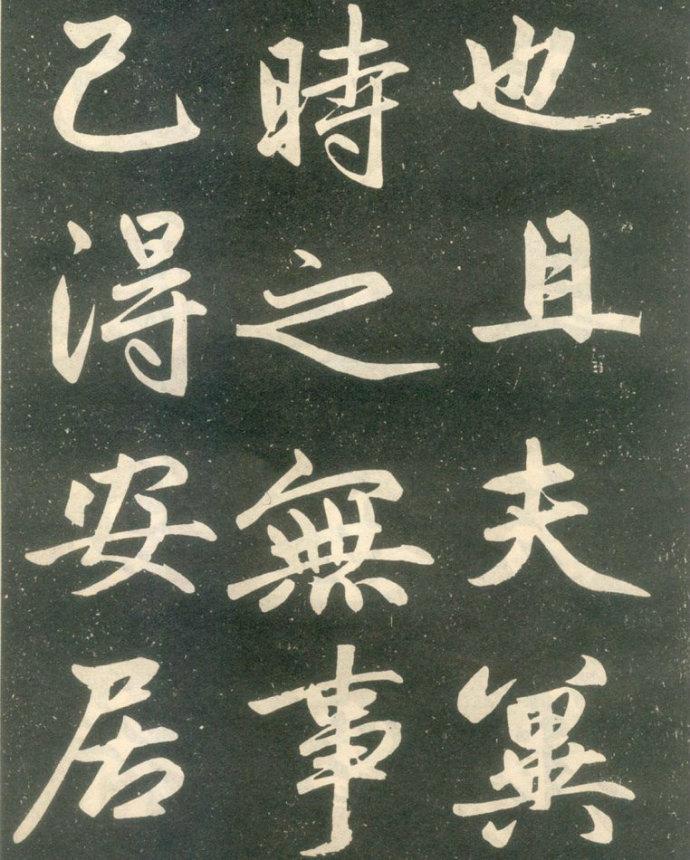 也且夫冀
時之無事
己得安居